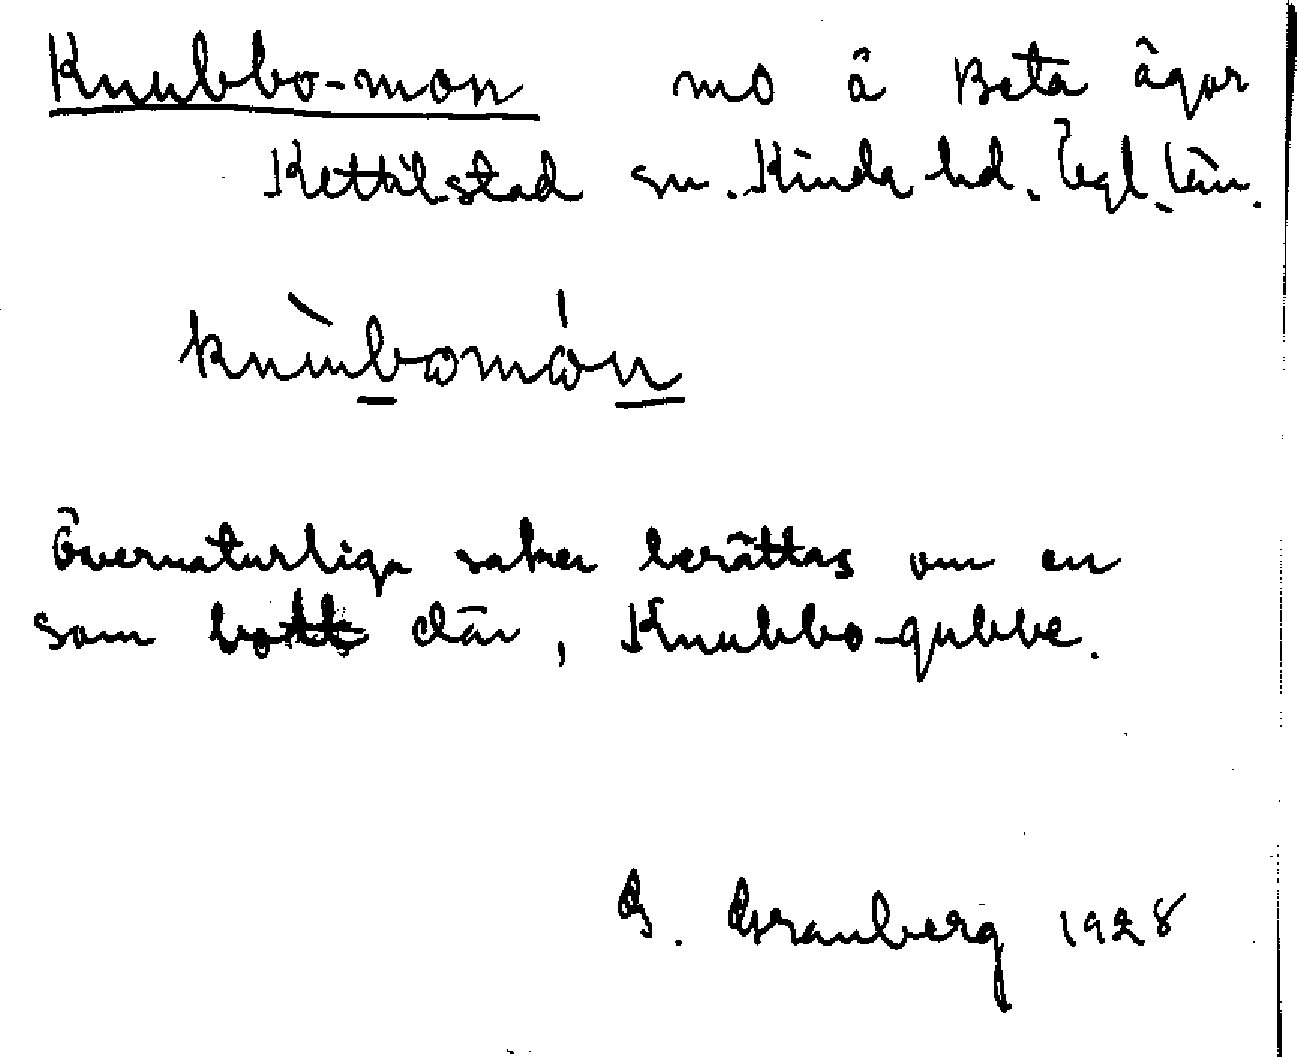 Knubbo-mon mo å Beta ägor
Kettilstad sn. Kinda hd. Ögl. län.
knùbomón
Övernaturliga saker berättas om en
som bott där, Knubbo-gubbe.
G. Granberg 1928